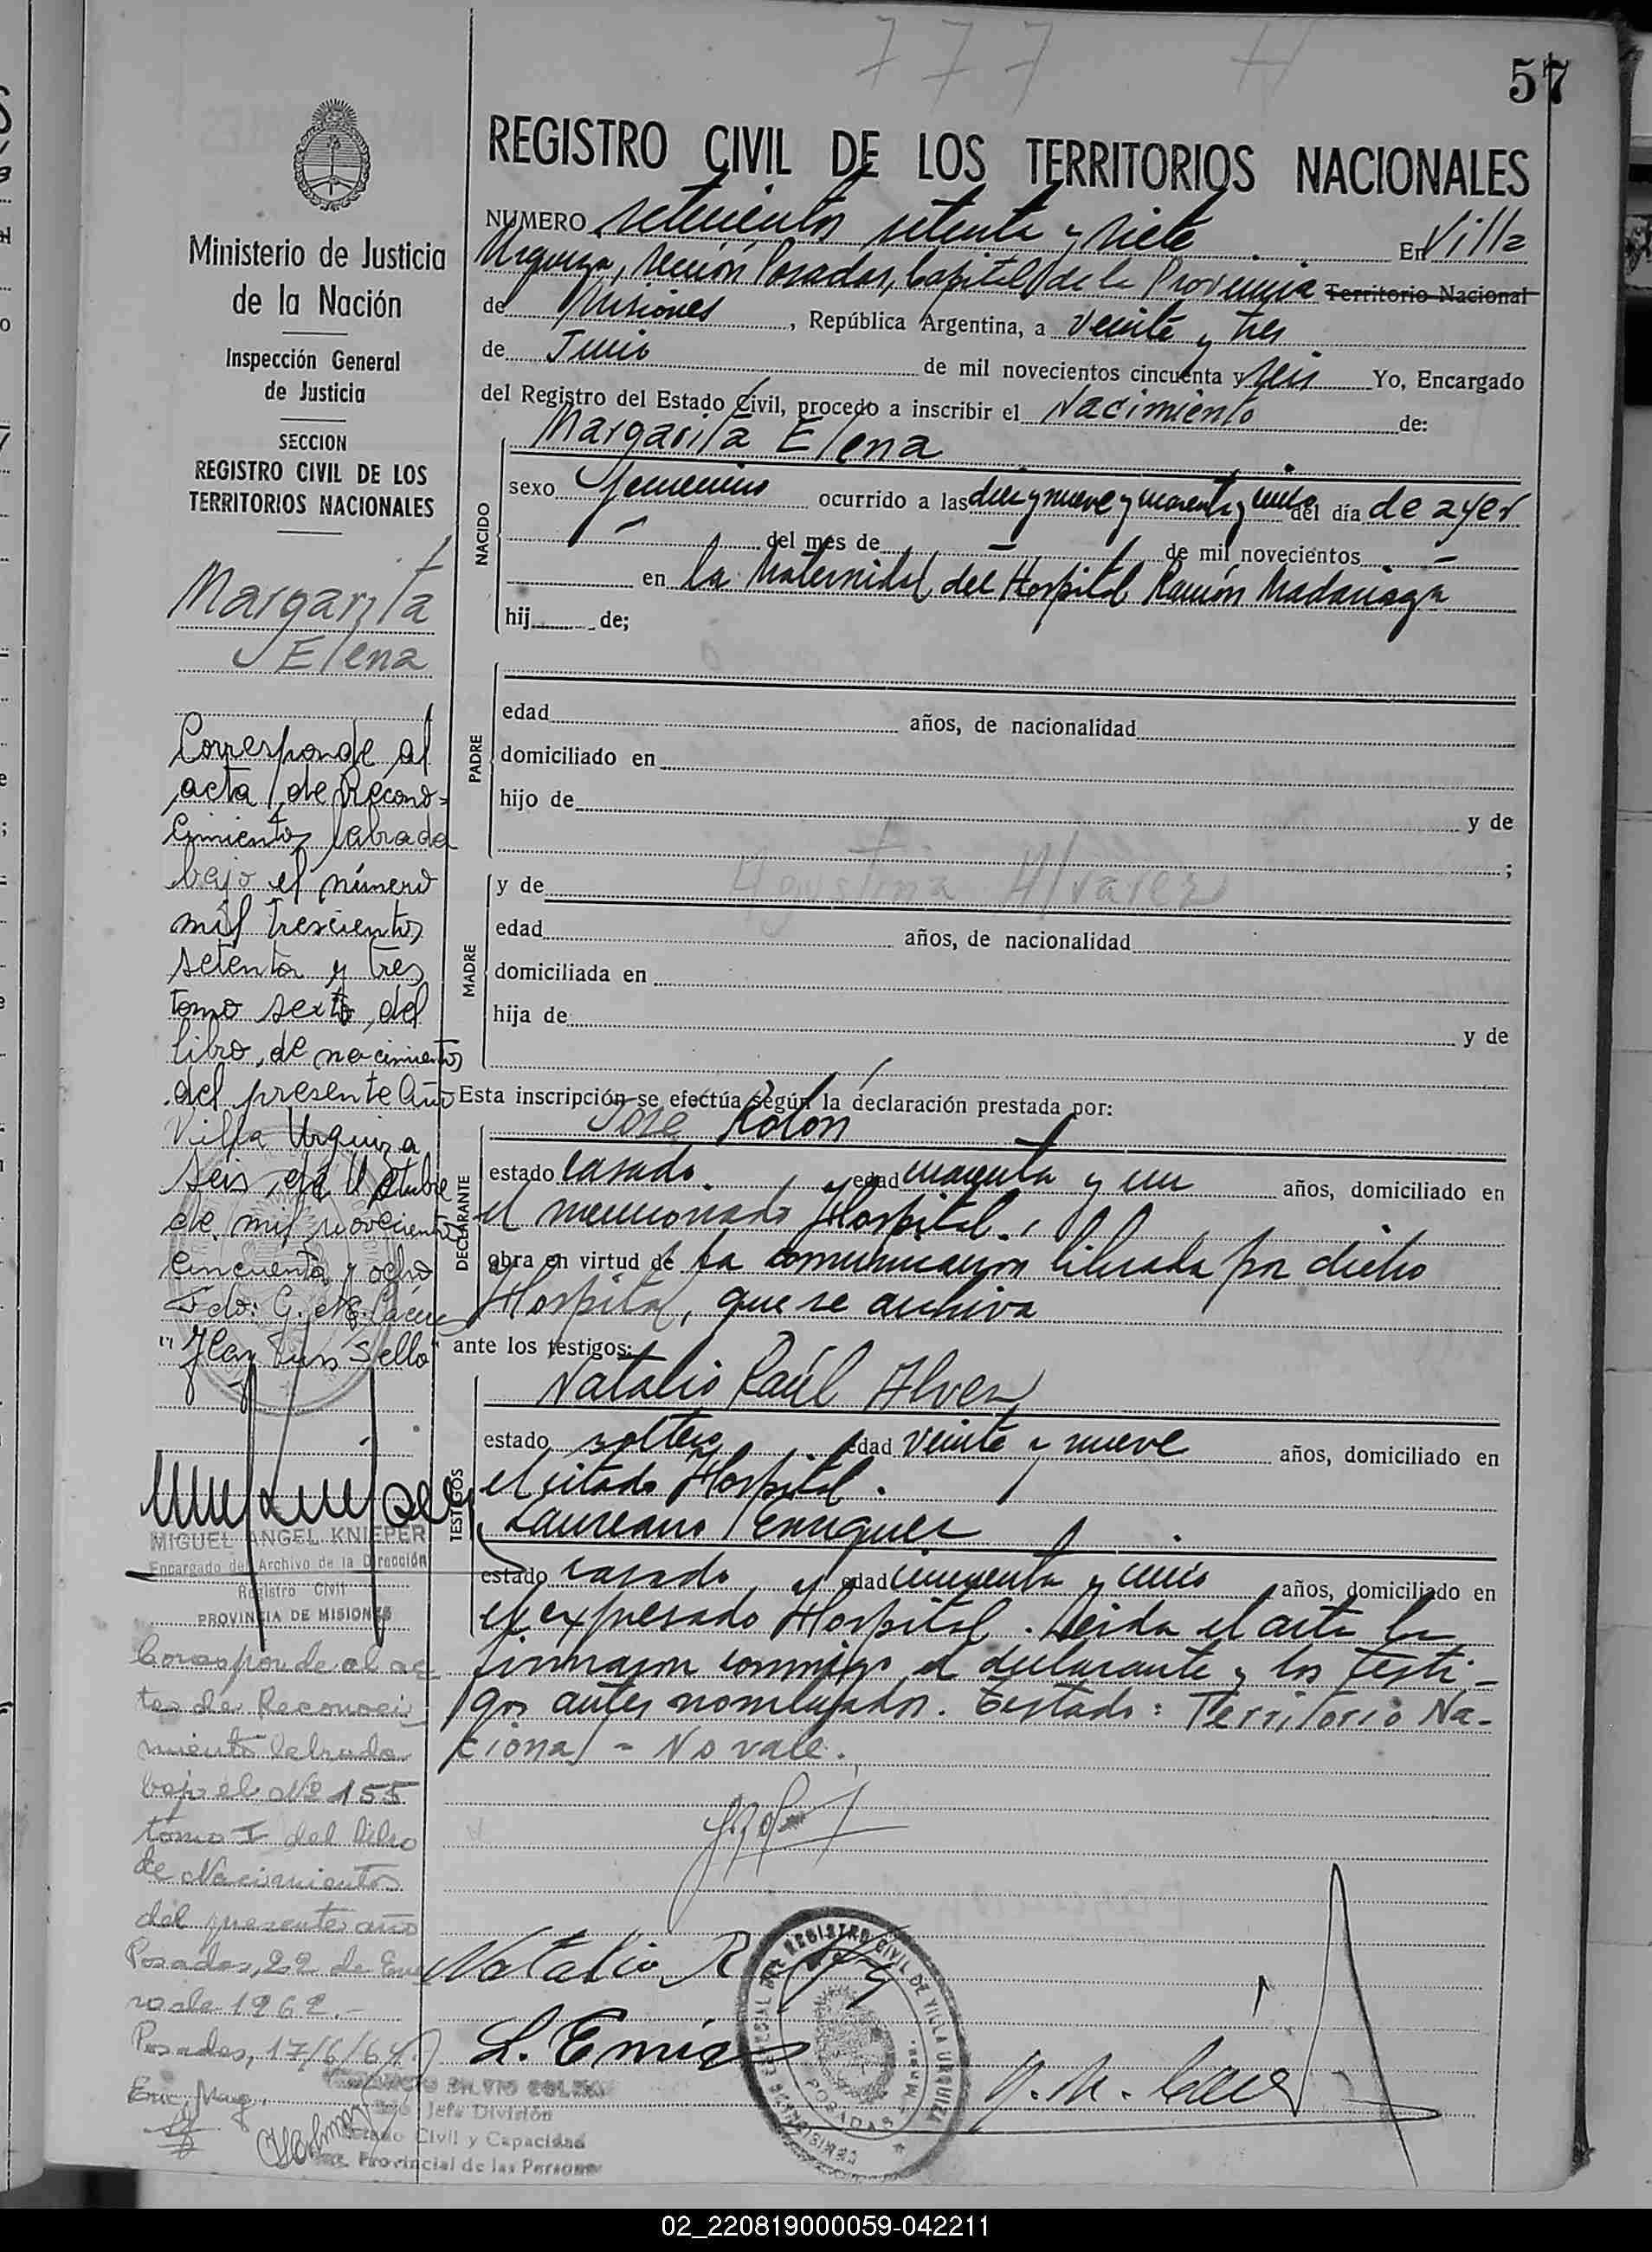 777
57
REGISTRO CIVIL DE LOS TERRITORIOS NACIONALES
NUMERO setecientos setenta y siete En Villa
Urquiza, Sección Posadas, Capital de la Provincia Territorio Nacional
de Misiones, República Argentina, a veinte y tres
de Junio de mil novecientos cincuenta y seis Yo, Encargado
del Registro del Estado Civil, procedo a inscribir el Nacimiento de:
NACIDO
Margarita Elena
sexo femenino ocurrido a las diez y nueve y cuarenta y cinco del día de ayer
- del mes de - de mil novecientos -
en la Maternidad del Hospital Ramón Madariaga
hij de;
PADRE
edad años, de nacionalidad
domiciliado en
hijo de y de
;
MADRE
y de Agustina Alvarez
edad años, de nacionalidad
domiciliada en
hija de y de
Esta inscripción se efectúa según la declaración prestada por:
DECLARANTE
José Rolón
estado casado. edad cuarenta y un años, domiciliado en
el mencionado Hospital.
obra en virtud de la comunicación librada por dicho
Hospital, que se archiva
ante los testigos:
TESTIGOS
Natalio Raúl Alvez
estado soltero edad veinte y nueve años, domiciliado en
el citado Hospital.
Laureano Enriquez
estado casado edad cincuenta y cinco años, domiciliado en
el expresado Hospital. Leida el acta la
firmaron conmigo el declarante y los testi-
gos antes nombrados. Testado: Territorio Na-
cional - No vale.
Natalio R.
L. Enriq
REGISTRO CIVIL DE VILLA URQUIZA
POSADAS
Ministerio de Justicia
de la Nación
Inspección General
de Justicia
SECCION
REGISTRO CIVIL DE LOS
TERRITORIOS NACIONALES
Margarita
Elena
Corresponde al
acta de Recono-
cimiento labrada
bajo el número
mil trescientos
setenta y tres
tomo sexto, del
libro, de nacimientos
del presente Año
Villa Urquiza
seis de Octubre
de mil novecientos
cincuenta y ocho
Fdo: G. M. Cáceres
"Hay un Sello"
MIGUEL ANGEL KNIEPER
Encargado del Archivo de la Dirección
Registro Civil
PROVINCIA DE MISIONES
Corresponde al ac
ta de Reconoci
miento labrada
bajo el Nº 155
tomo I del libro
de Nacimientos
del presente año
Posadas, 22 de Ene
ro de 1962.-
Posadas, 17/6/64.
Enc. Mag.
Jefe División
Estado Civil y Capacidad
Provincial de las Personas
02_220819000059-042211